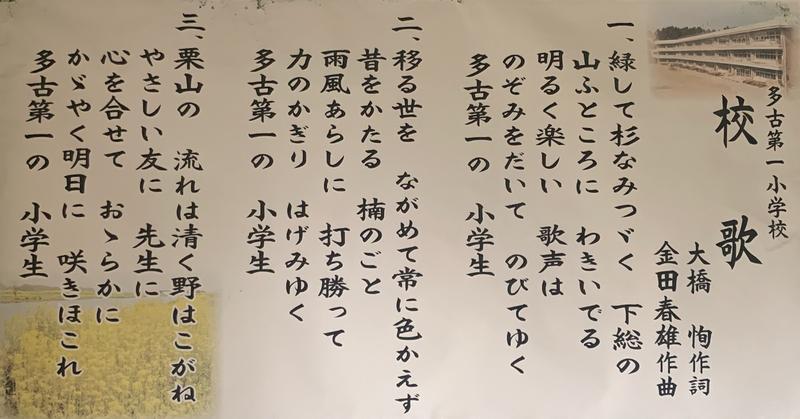 多古第一小学校
校歌
大橋恂作詞
金田春雄作曲
一、緑して杉なみつゞく 下総の
山ふところに わきいでる
明るく楽しい 歌声は
のぞみをだいて のびてゆく
多古第一の 小学生
二、移る世を ながめて常に色かえず
昔をかたる 楠のごと
雨風あらしに 打ち勝って
力のかぎり はげみゆく
多古第一の 小学生
三、栗山の 流れは清く野はこがね
やさしい友に 先生に
心を合せて おゝらかに
かゞやく明日に 咲きほこれ
多古第一の 小学生